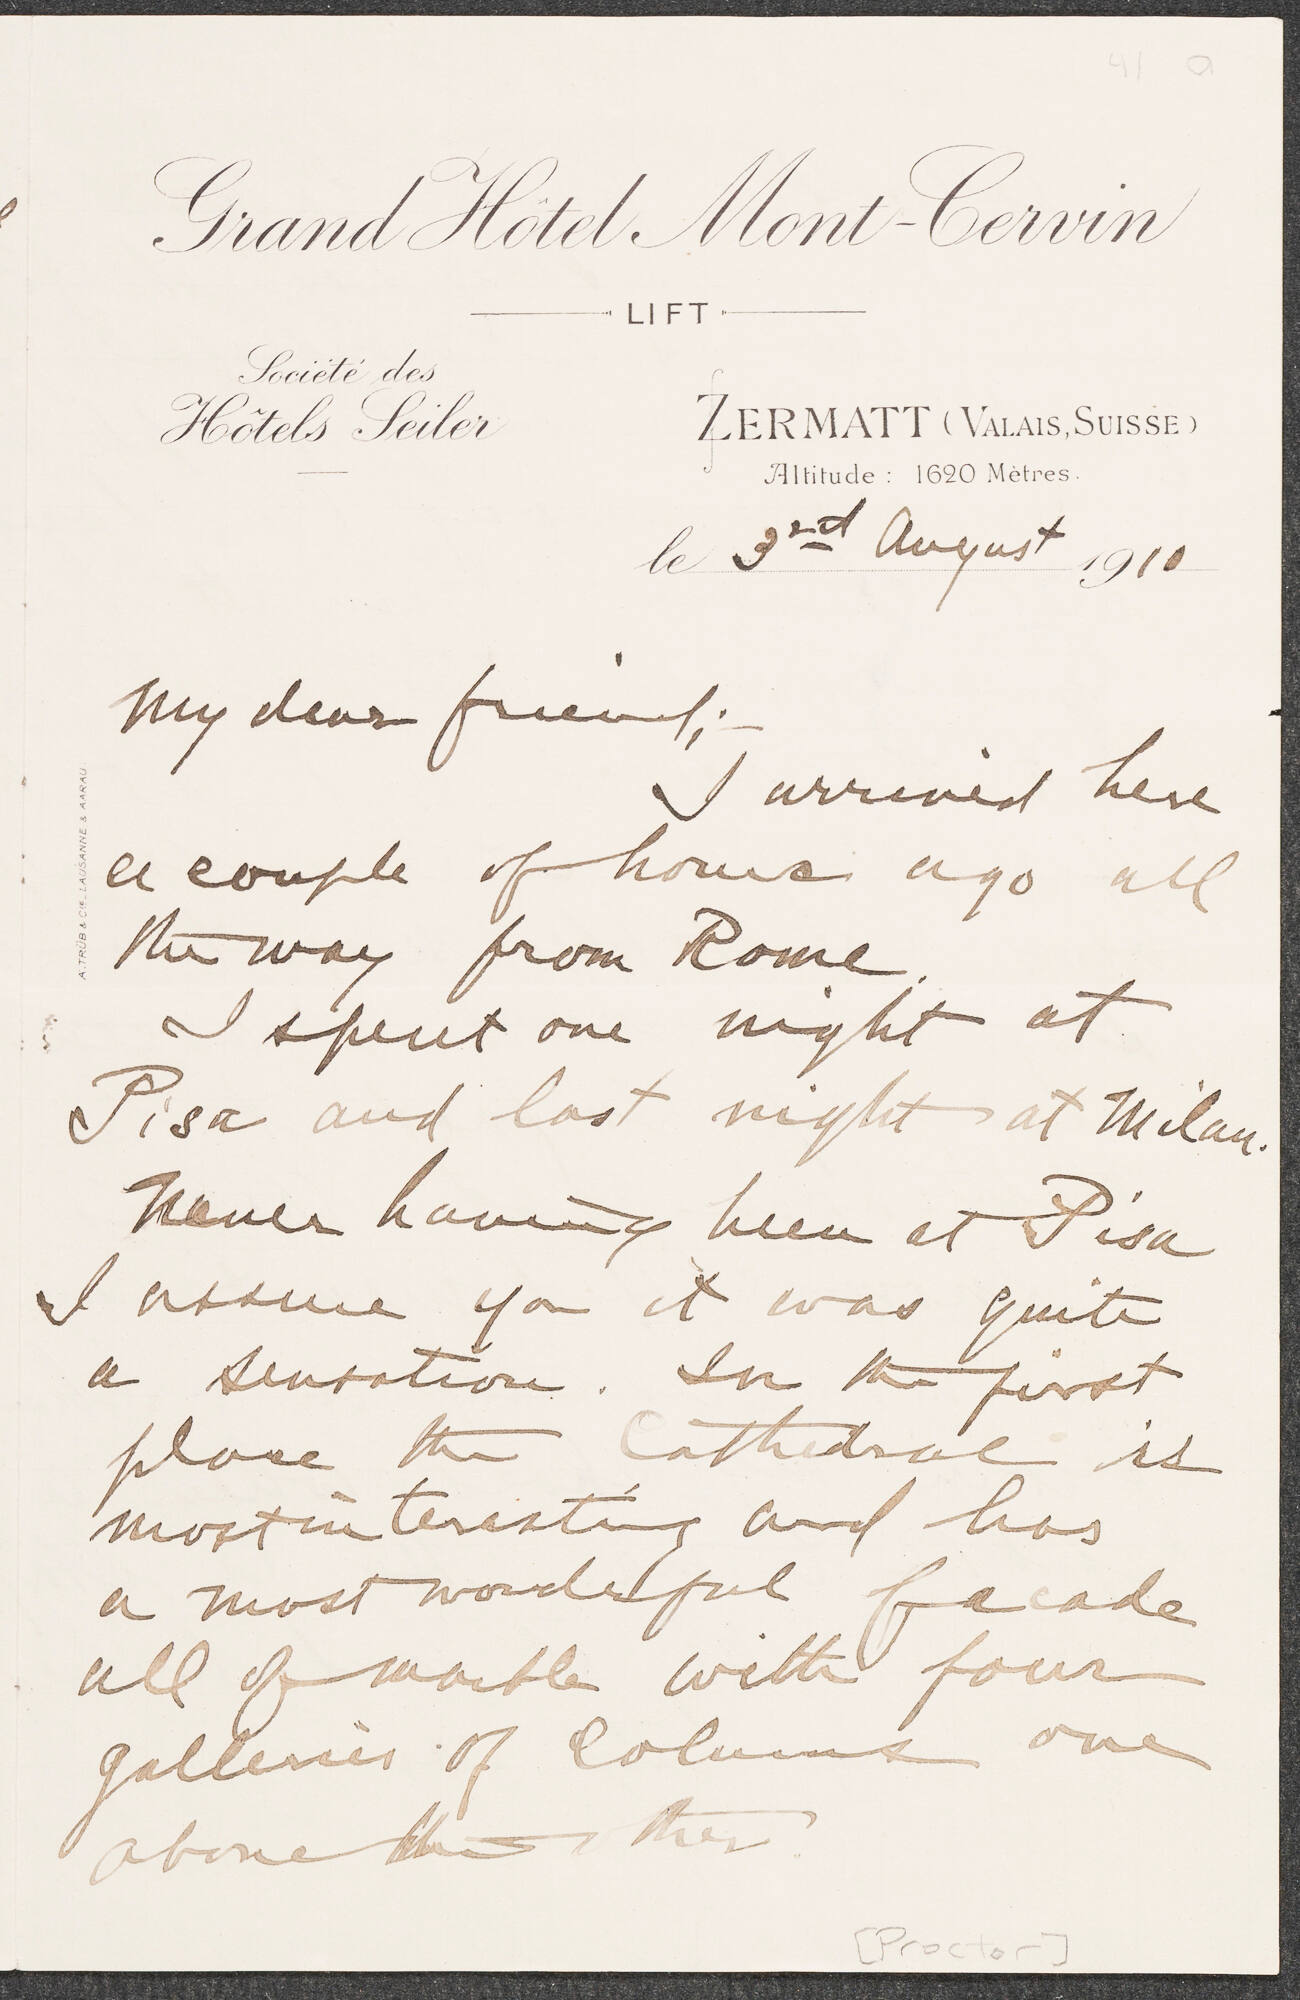 41 a
Grand Hôtel Mont-Cervin
LIFT
Société des
Hôtels Seiler
ZERMATT (VALAIS, SUISSE)
Altitude : 1620 Mètres.
le 3rd August 1910
My dear friend;-
I arrived here
a couple of hours ago all
the way from Rome.
I spent one night at
Pisa and last night at Milan.
Never having been at Pisa
I assure you it was quite
a sensation. In the first
place the Cathedral is
most interesting and has
a most wonderful facade
all of marble with four
galleries of columns one
above the other.
A. TRÜB & CIE. LAUSANNE & AARAU.
[Proctor]